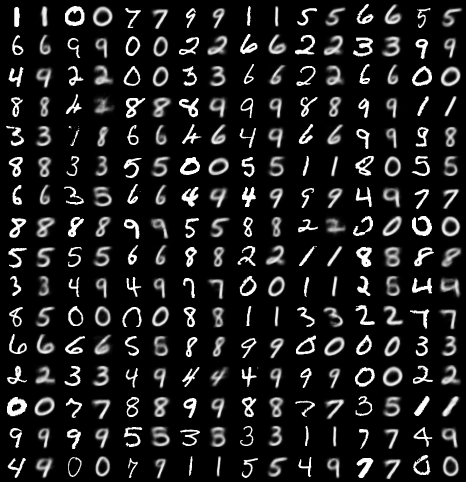 1 1 0 0 7 7 9 9 1 1 5 5 6 6 5 5
6 6 9 9 0 0 2 2 6 6 2 2 3 3 9 9
4 9 2 2 0 0 3 3 6 6 2 2 6 6 0 0
8 8 4 2 8 8 8 9 9 9 8 8 9 9 1 1
3 3 7 8 6 6 4 6 4 9 6 6 9 9 9 8
8 8 3 3 5 5 0 0 5 5 1 1 8 0 5 5
6 6 3 5 6 6 4 9 4 9 9 9 4 9 7 7
8 8 8 8 9 9 5 5 8 8 2 2 0 0 0 0
5 5 5 5 6 6 8 8 2 2 1 1 8 8 8 8
3 3 4 9 4 9 7 7 0 0 1 1 2 5 4 4
8 5 0 0 0 0 8 8 1 1 3 3 2 2 7 7
6 6 6 6 5 5 8 8 9 9 0 0 0 0 3 3
2 2 3 3 4 9 4 4 4 9 9 9 0 0 2 2
0 0 7 7 8 8 9 9 8 8 7 7 3 5 1 1
9 9 9 9 5 5 3 3 3 3 1 1 7 7 4 9
4 9 0 0 7 9 1 1 5 5 4 9 7 7 0 0